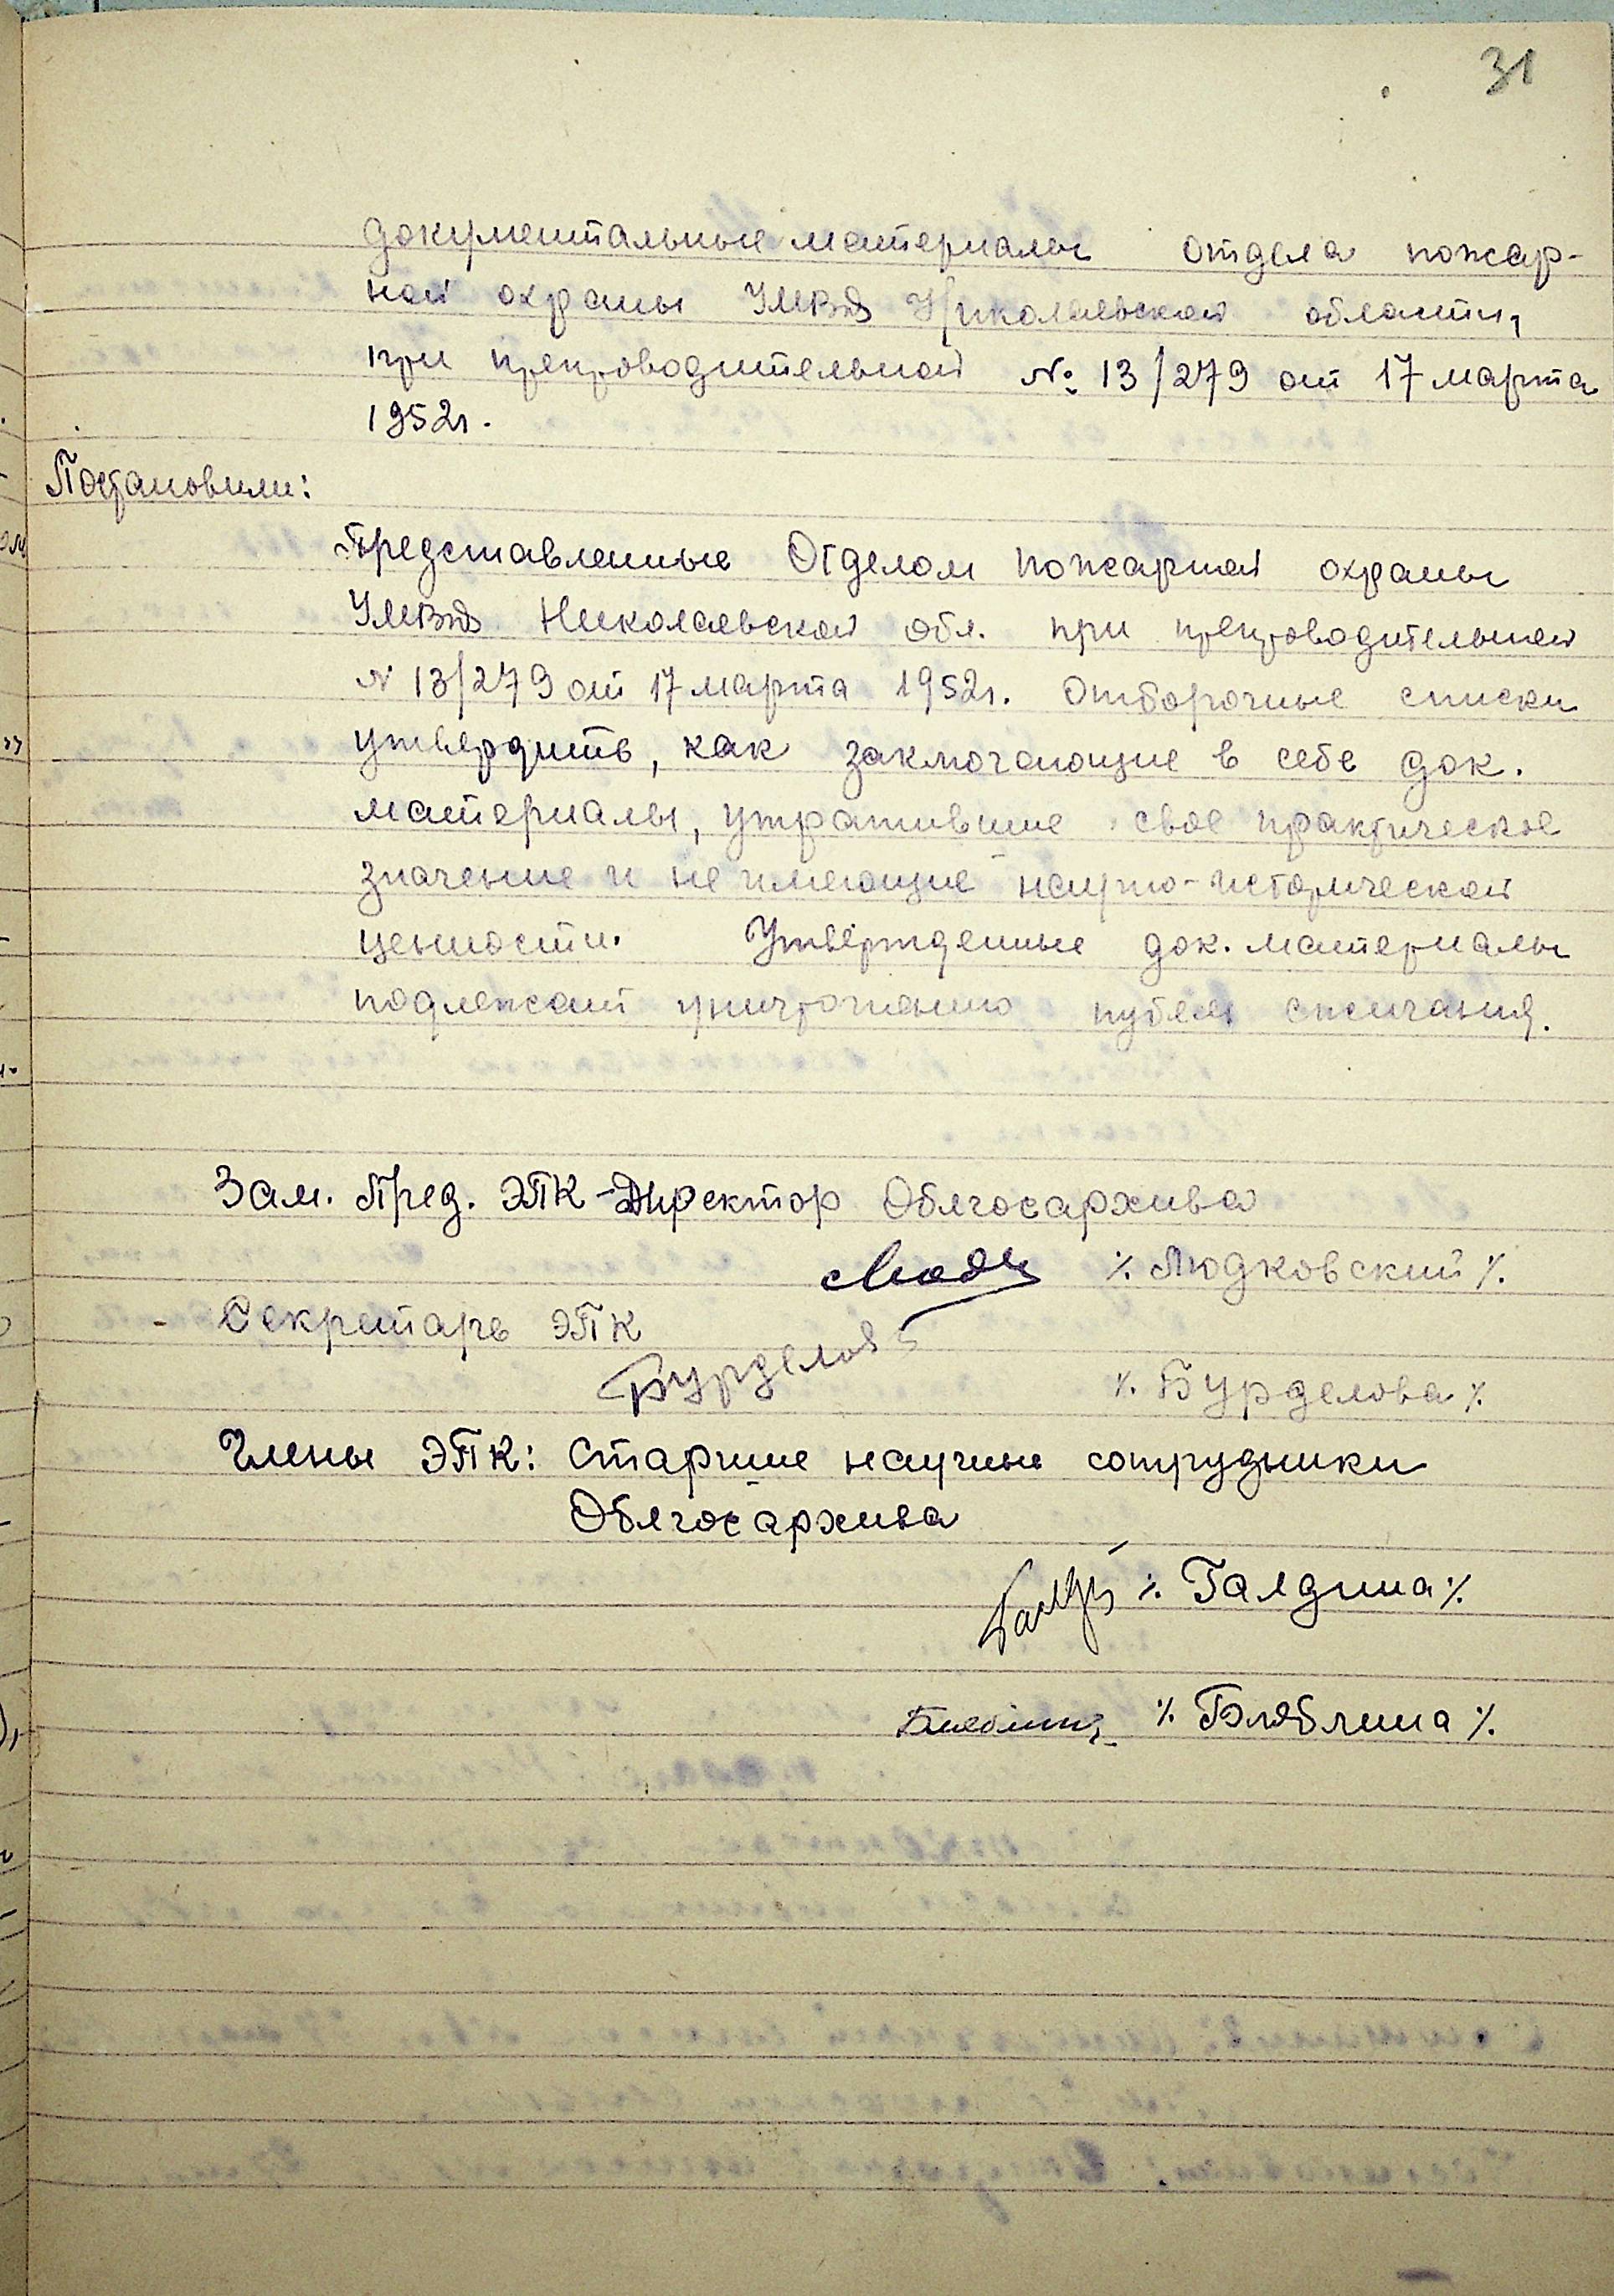 31
документальные материалы отдела пожар-
ной охраны УМВД Николаевской области,
при препроводительной № 13/279 от 17 марта
1952г.
Постановили:
Представленные Отделом пожарной охраны
УМВД Николаевской обл. при препроводительной
N 13/279 от 17 марта 1952г. отборочные списки
утвердить, как заключающие в себе док.
материалы, утратившие свое практическое
значение и не имеющие научно-исторической
ценности. Утвержденные док. материалы
подлежат уничтожению путем сжигания.
Зам. Пред. ЭПК - Директор Облгосархива
% Людковский %.
- Секретарь ЭПК
Бурделова
% Бурделова %
Члены ЭПК: Старшие научные сотрудники
Облгосархива
% Галдина %.
% Бляблина %.